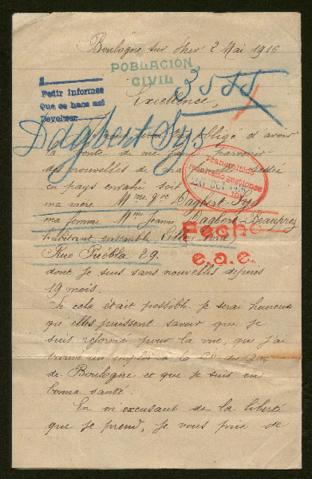 Boulogne sur Mer 2 Mai 1916
POBLACIÓN
CIVIL
Pedir Informes
Que se hace así
Devolver
3555
Excellence,
Dagbert Sys
obligé d'avoir
la bonté de me faire parvenir
des nouvelles de ma famille restée
en pays envahi soit
ma mère Mme Vve Dagbert-Sys
ma femme Mme Jeanne Dagbert-Beauprez
habitant ensemble Lille Nord
Rue Puébla 29.
Fecho
e.a.e.
dont je suis sans nouvelles depuis
19 mois.
Si cela était possible, je serai heureux
qu'elles puissent savoir que je
suis réformé pour la vue, que j'ai
trouvé un emploi à la
de Boulogne et que je suis en
bonne santé.
En m'excusant de la liberté
que je prend, je vous prie de